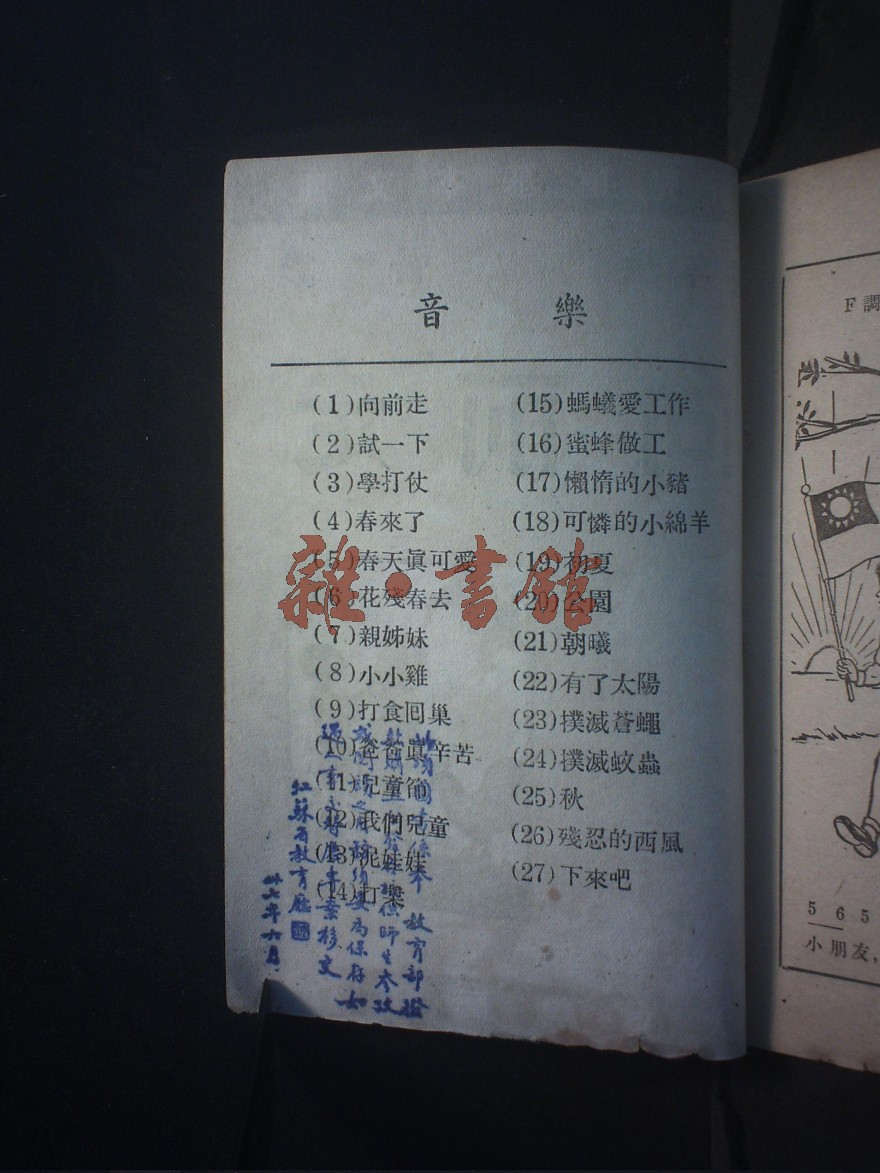 音 樂
(1)向前走
(2)試一下
(3)學打仗
(4)春來了
(5)春天眞可愛
(6)花殘春去
(7)親姊妹
(8)小小雞
(9)打食囘巢
(10)爸爸眞辛苦
(11)兒童節
(12)我們兒童
(13)泥娃娃
(14)打樂
(15)螞蟻愛工作
(16)蜜蜂做工
(17)懶惰的小豬
(18)可憐的小綿羊
(19)初夏
(20)公園
(21)朝曦
(22)有了太陽
(23)撲滅蒼蠅
(24)撲滅蚊蟲
(25)秋
(26)殘忍的西風
(27)下來吧
雜·書館
教育部
師生參攷
爲保存如
移交
江蘇省教育廳
卅六年六月
F調
5 6 5
小朋友,